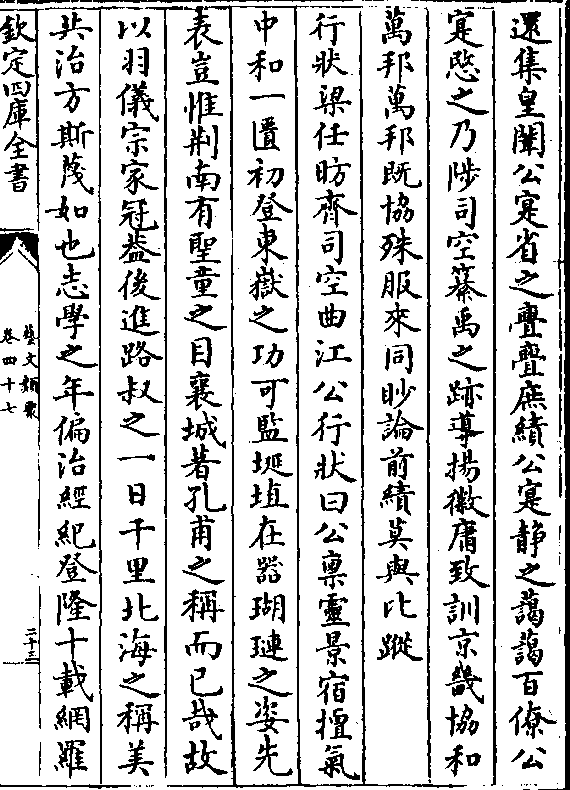 還集皇闈公寔省之亹亹庶績公寔静之藹藹百僚公
寔愍之乃陟司空纂禹之跡導揚徽庸致訓京畿協和
萬邦萬邦既協殊服來同眇論前績莫與比蹤
行狀梁任昉齊司空曲江公行狀曰公稟靈景宿擅氣
中和一匱初登東嶽之功可監埏埴在器瑚璉之姿先
表豈惟荆南有聖童之目襄城著孔甫之稱而已哉故
以羽儀宗家冠葢後進路叔之一日千里北海之稱美
共治方斯蔑如也志學之年偏治經紀登隆十載網羅
欽定四庫全書
藝文類聚
卷四十七
三十三